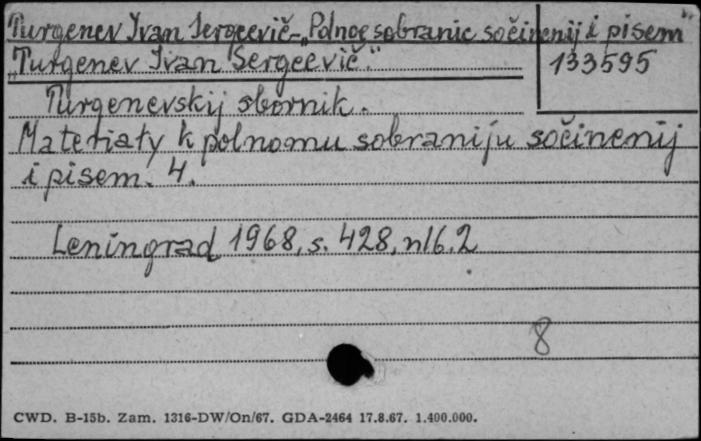 Turgenev Ivan Sergeevič-„Polnoe sobranie sočinenij i pisem"
„Turgenev Ivan Sergeevič."
133595
Turgenevskij sbornik.
Materiały k połnomu sobraniju sočinenij
i pisem. 4.
Leningrad 1968, s. 428, nlb. 2
8
CWD. B-15b. Zam. 1316-DW/On/67. GDA-2464 17.8.67. 1.400.000.